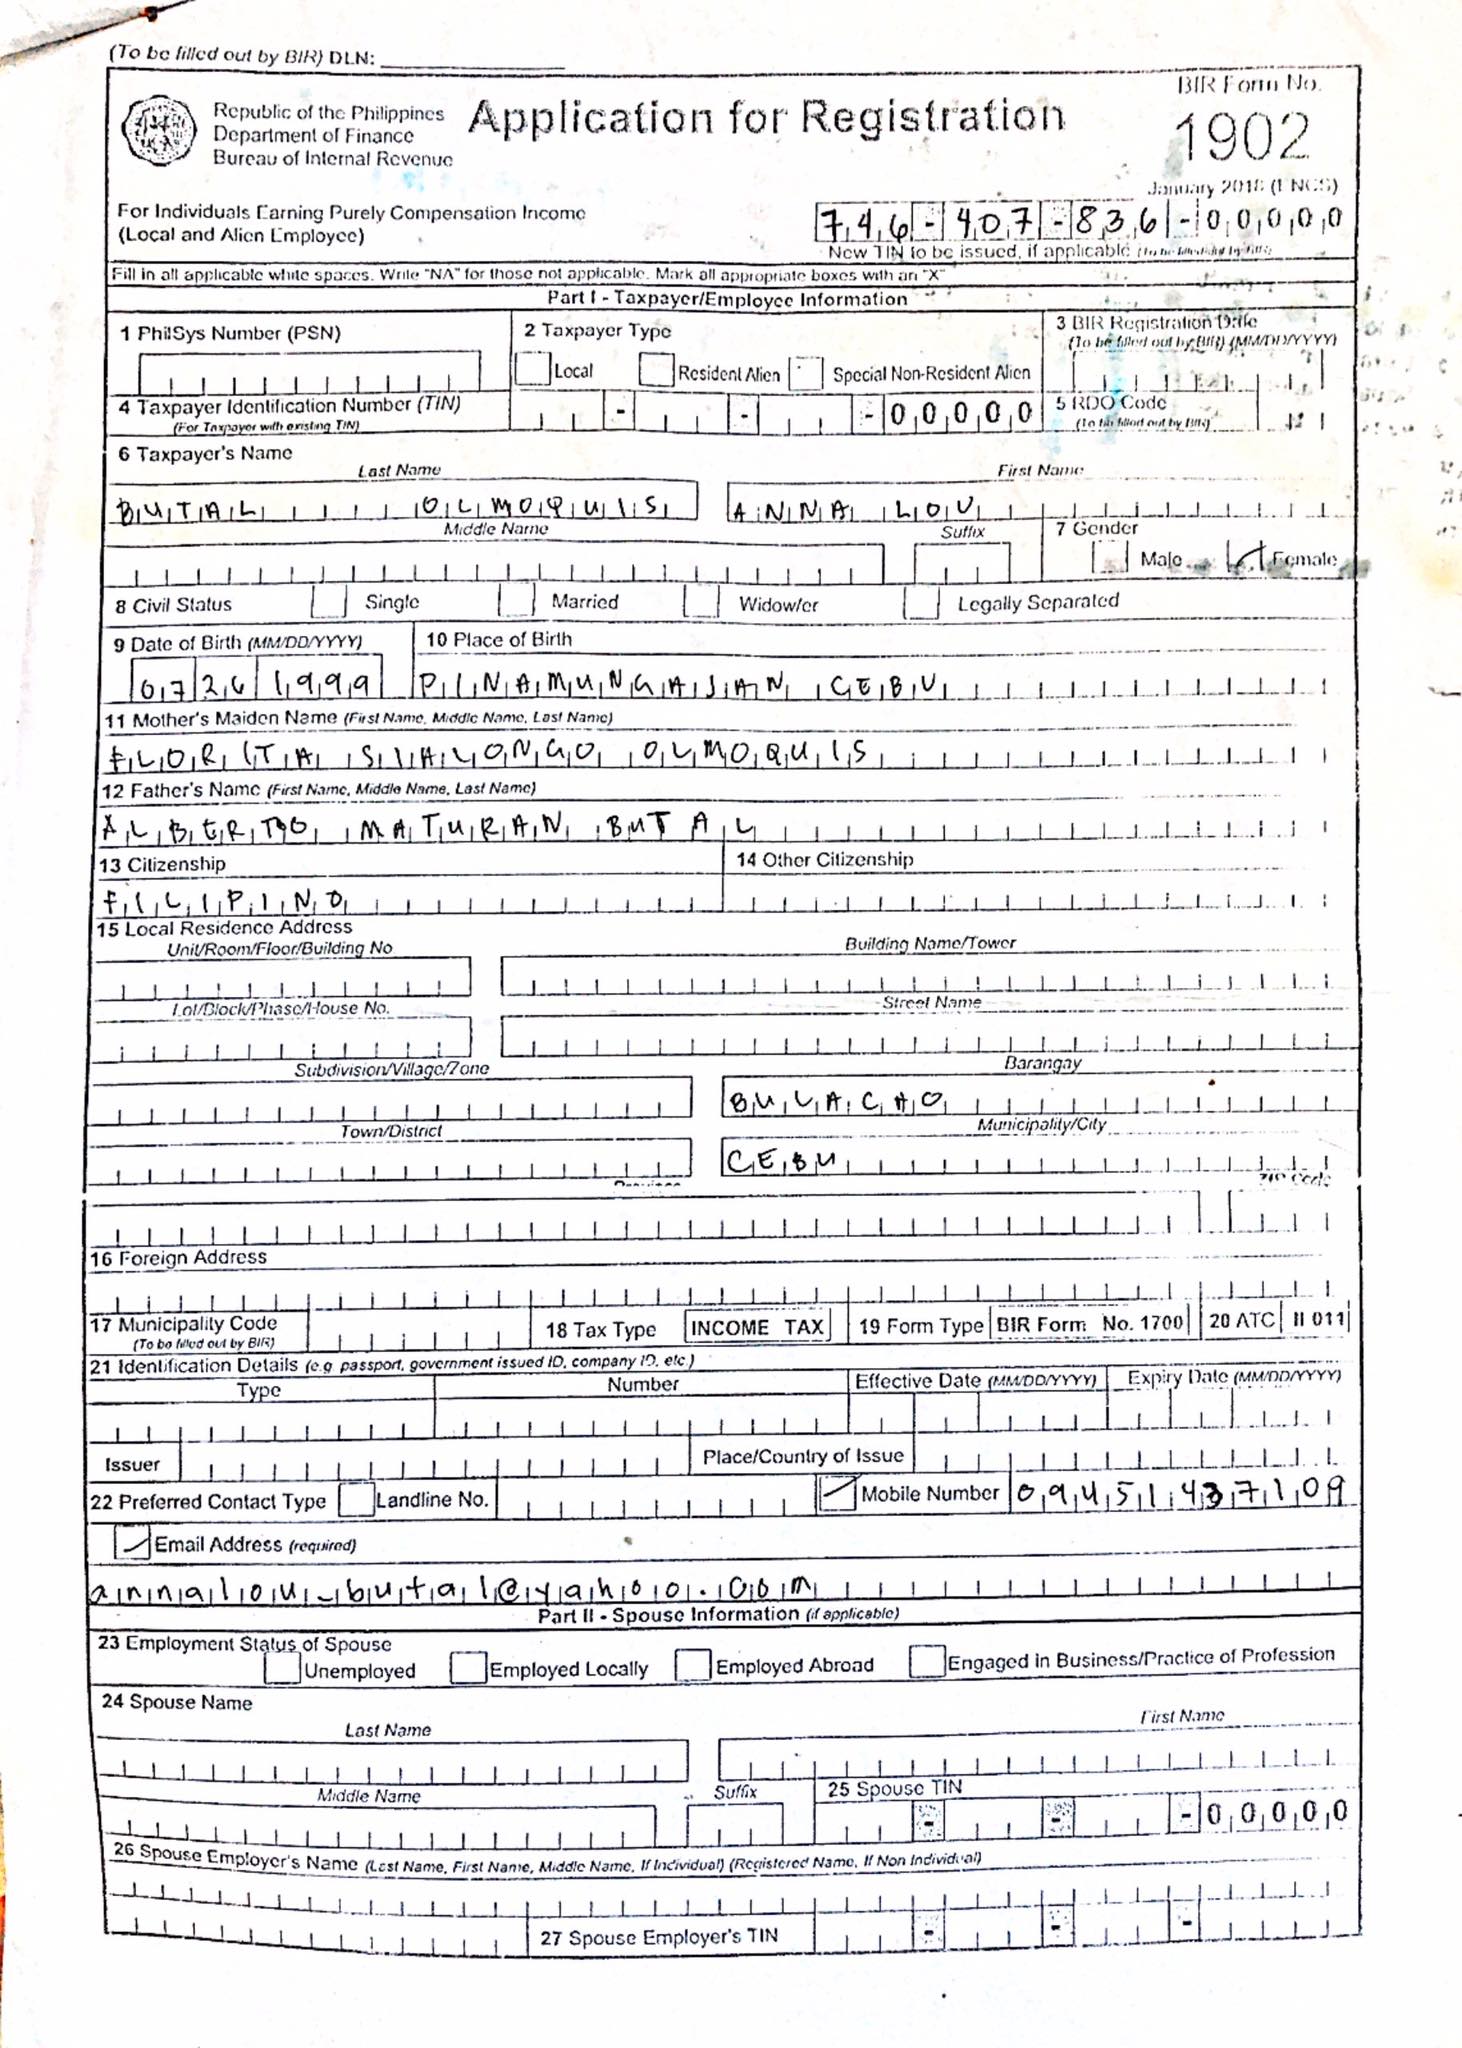 (To be filled out by BIR) DLN:
BIR Form No.
Republic of the Philippines
Department of Finance
Bureau of Internal Revenue
Application for Registration
1902
January 2018 (ENCS)
For Individuals Earning Purely Compensation Income
(Local and Alien Employee)
746-407-836-00000
New TIN to be issued, if applicable (To be filled out by BIR)
Fill in all applicable white spaces. Write "NA" for those not applicable. Mark all appropriate boxes with an "X"
Part I - Taxpayer/Employee Information
1 PhilSys Number (PSN)
2 Taxpayer Type
3 BIR Registration Date
(To be filled out by BIR) (MM/DD/YYYY)
Local Resident Alien Special Non-Resident Alien
4 Taxpayer Identification Number (TIN)
(For Taxpayer with existing TIN)
- - -00000
5 RDO Code
(To be filled out by BIR)
6 Taxpayer's Name
Last Name First Name
BUTAL OLMOQUIS ANNA LOU
Middle Name Suffix 7 Gender
Male Female
8 Civil Status Single Married Widow/er Legally Separated
9 Date of Birth (MM/DD/YYYY) 10 Place of Birth
07261999 PINAMUNGAJAN CEBU
11 Mother's Maiden Name (First Name, Middle Name, Last Name)
FLORITA SIALONGO OLMOQUIS
12 Father's Name (First Name, Middle Name, Last Name)
ALBERTO MATURAN BUTAL
13 Citizenship 14 Other Citizenship
FILIPINO
15 Local Residence Address
Unit/Room/Floor/Building No Building Name/Tower
Lot/Block/Phase/House No. Street Name
Subdivision/Village/Zone Barangay
BULACAO
Town/District Municipality/City
CEBU
Province ZIP Code
16 Foreign Address
17 Municipality Code
(To be filled out by BIR)
18 Tax Type INCOME TAX 19 Form Type BIR Form No. 1700 20 ATC II 011
21 Identification Details (e.g passport, government issued ID, company ID, etc.)
Type Number Effective Date (MM/DD/YYYY) Expiry Date (MM/DD/YYYY)
Issuer Place/Country of Issue
22 Preferred Contact Type Landline No. Mobile Number 09451437109
Email Address (required)
annalou_butal@yahoo.com
Part II - Spouse Information (if applicable)
23 Employment Status of Spouse
Unemployed Employed Locally Employed Abroad Engaged in Business/Practice of Profession
24 Spouse Name
Last Name First Name
Middle Name Suffix 25 Spouse TIN
- - -00000
26 Spouse Employer's Name (Last Name, First Name, Middle Name, If Individual) (Registered Name, If Non Individual)
27 Spouse Employer's TIN - - -